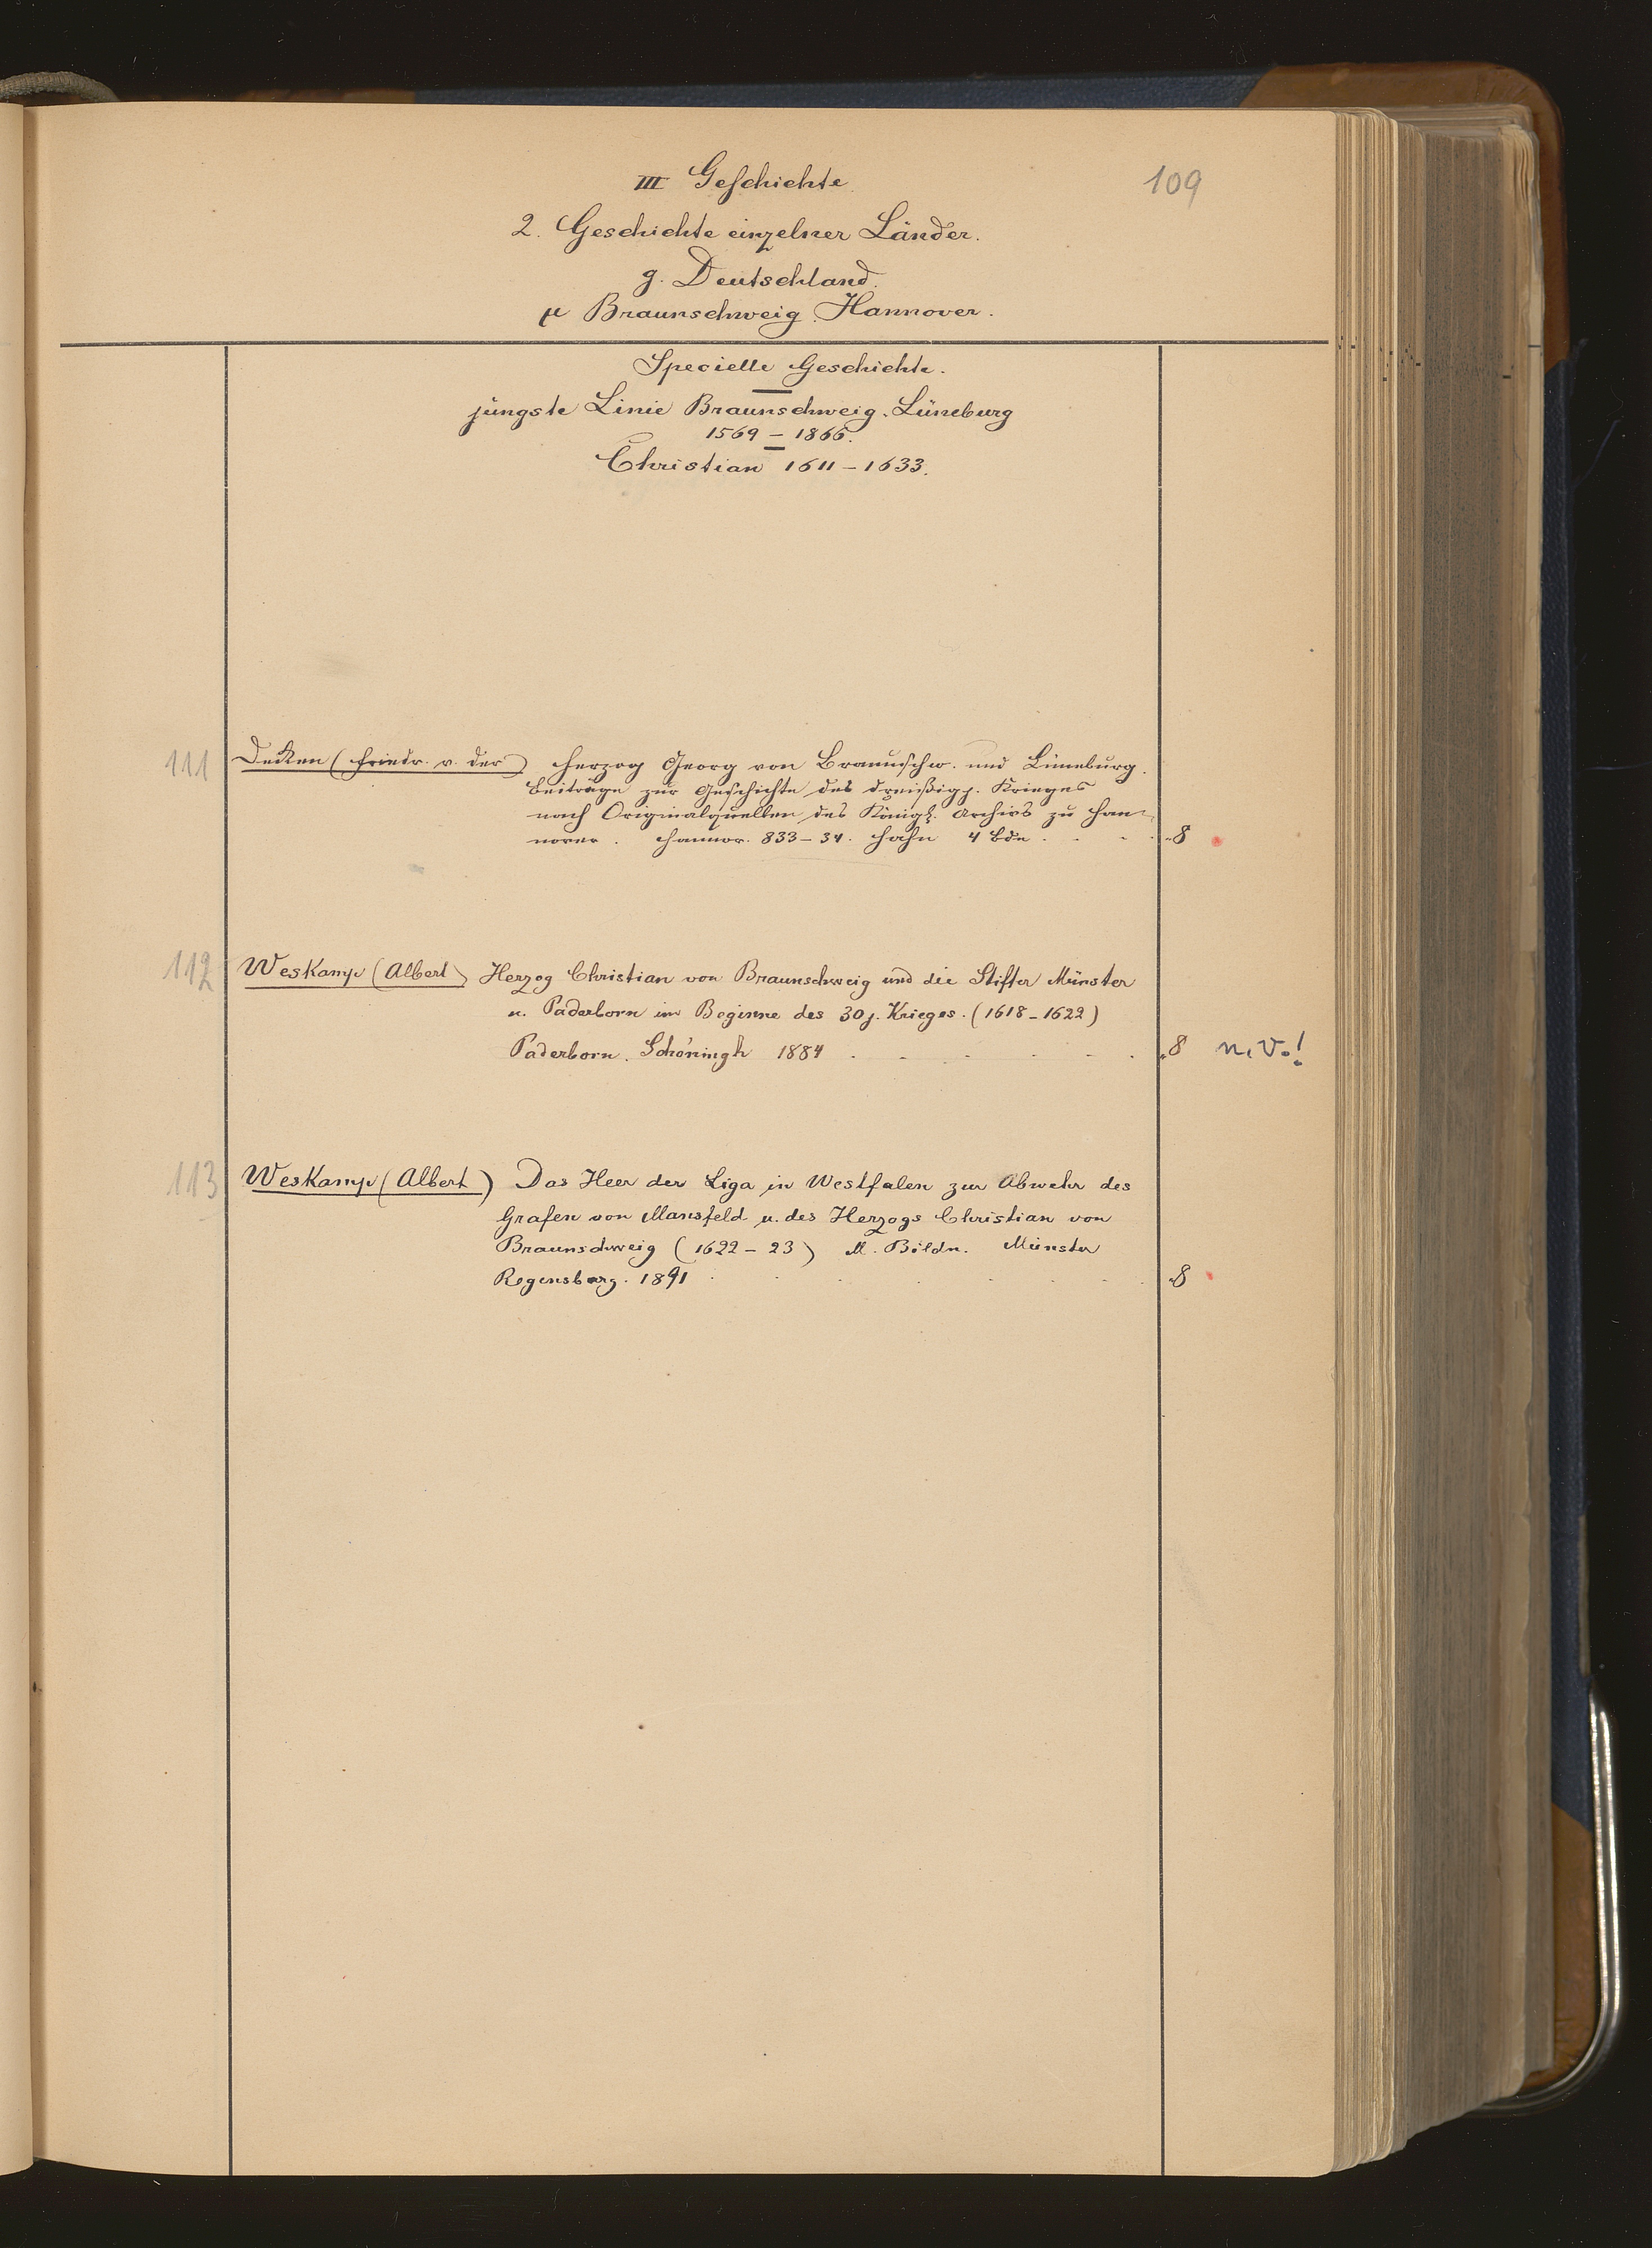 109
III Geschichte
2. Geschichte einzelner Länder.
g. Deutschland.
μ Braunschweig. Hannover.
Specielle Geschichte.
jüngste Linie Braunschweig-Lüneburg
1569 – 1866.
Christian 1611 – 1633.
111 Decken (Friedr. v. der) Herzog Georg von Braunschw. und Lüneburg.
Beiträge zur Geschichte des dreißigj. Krieges
nach Originalquellen des Königl. Archivs zu Han-
nover. Hannov. 833–34. Hahn 4 Bde . . . 8
112 Weskamp (Albert) Herzog Christian von Braunschweig und die Stifter Münster
u. Paderborn im Beginne des 30j. Krieges. (1618–1622)
Paderborn. Schöningh 1884 . . . . . . 8 n. V.!
113 Weskamp (Albert) Das Heer der Liga in Westfalen zur Abwehr des
Grafen von Mansfeld u. des Herzogs Christian von
Braunschweig (1622–23) M. Bildn. Münster
Regensberg. 1891 . . . . . . . 8